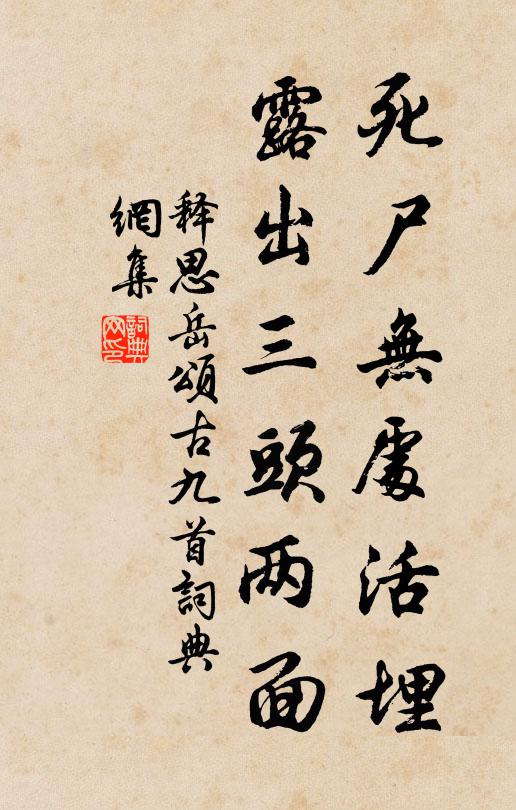 死尸無處活埋
露出三頭两面
释思岳頌古九首詞典
網集
詞典
网印